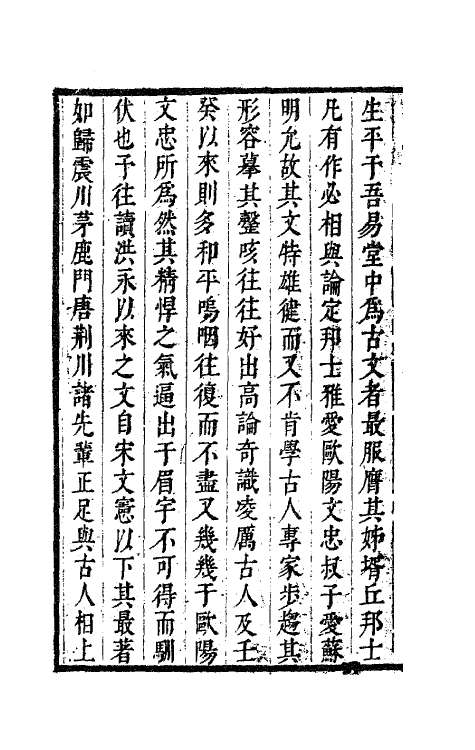 生平于吾易堂中爲古文者最服膺其姊壻丘邦士
凡有作必相與論定邦士雅愛歐陽文忠叔子愛蘇
明允故其文特雄健而又不肯學古人專家步趨其
形容摹其謦咳往往好出高論奇識凌厲古人及壬
癸以來則多和平嗚咽往復而不盡又幾幾于歐陽
文忠所爲然其精悍之氣逼出于眉宇不可得而馴
伏也予往讀洪永以來之文自宋文憲以下其最著
如歸震川茅鹿門唐荊川諸先輩正足與古人相上